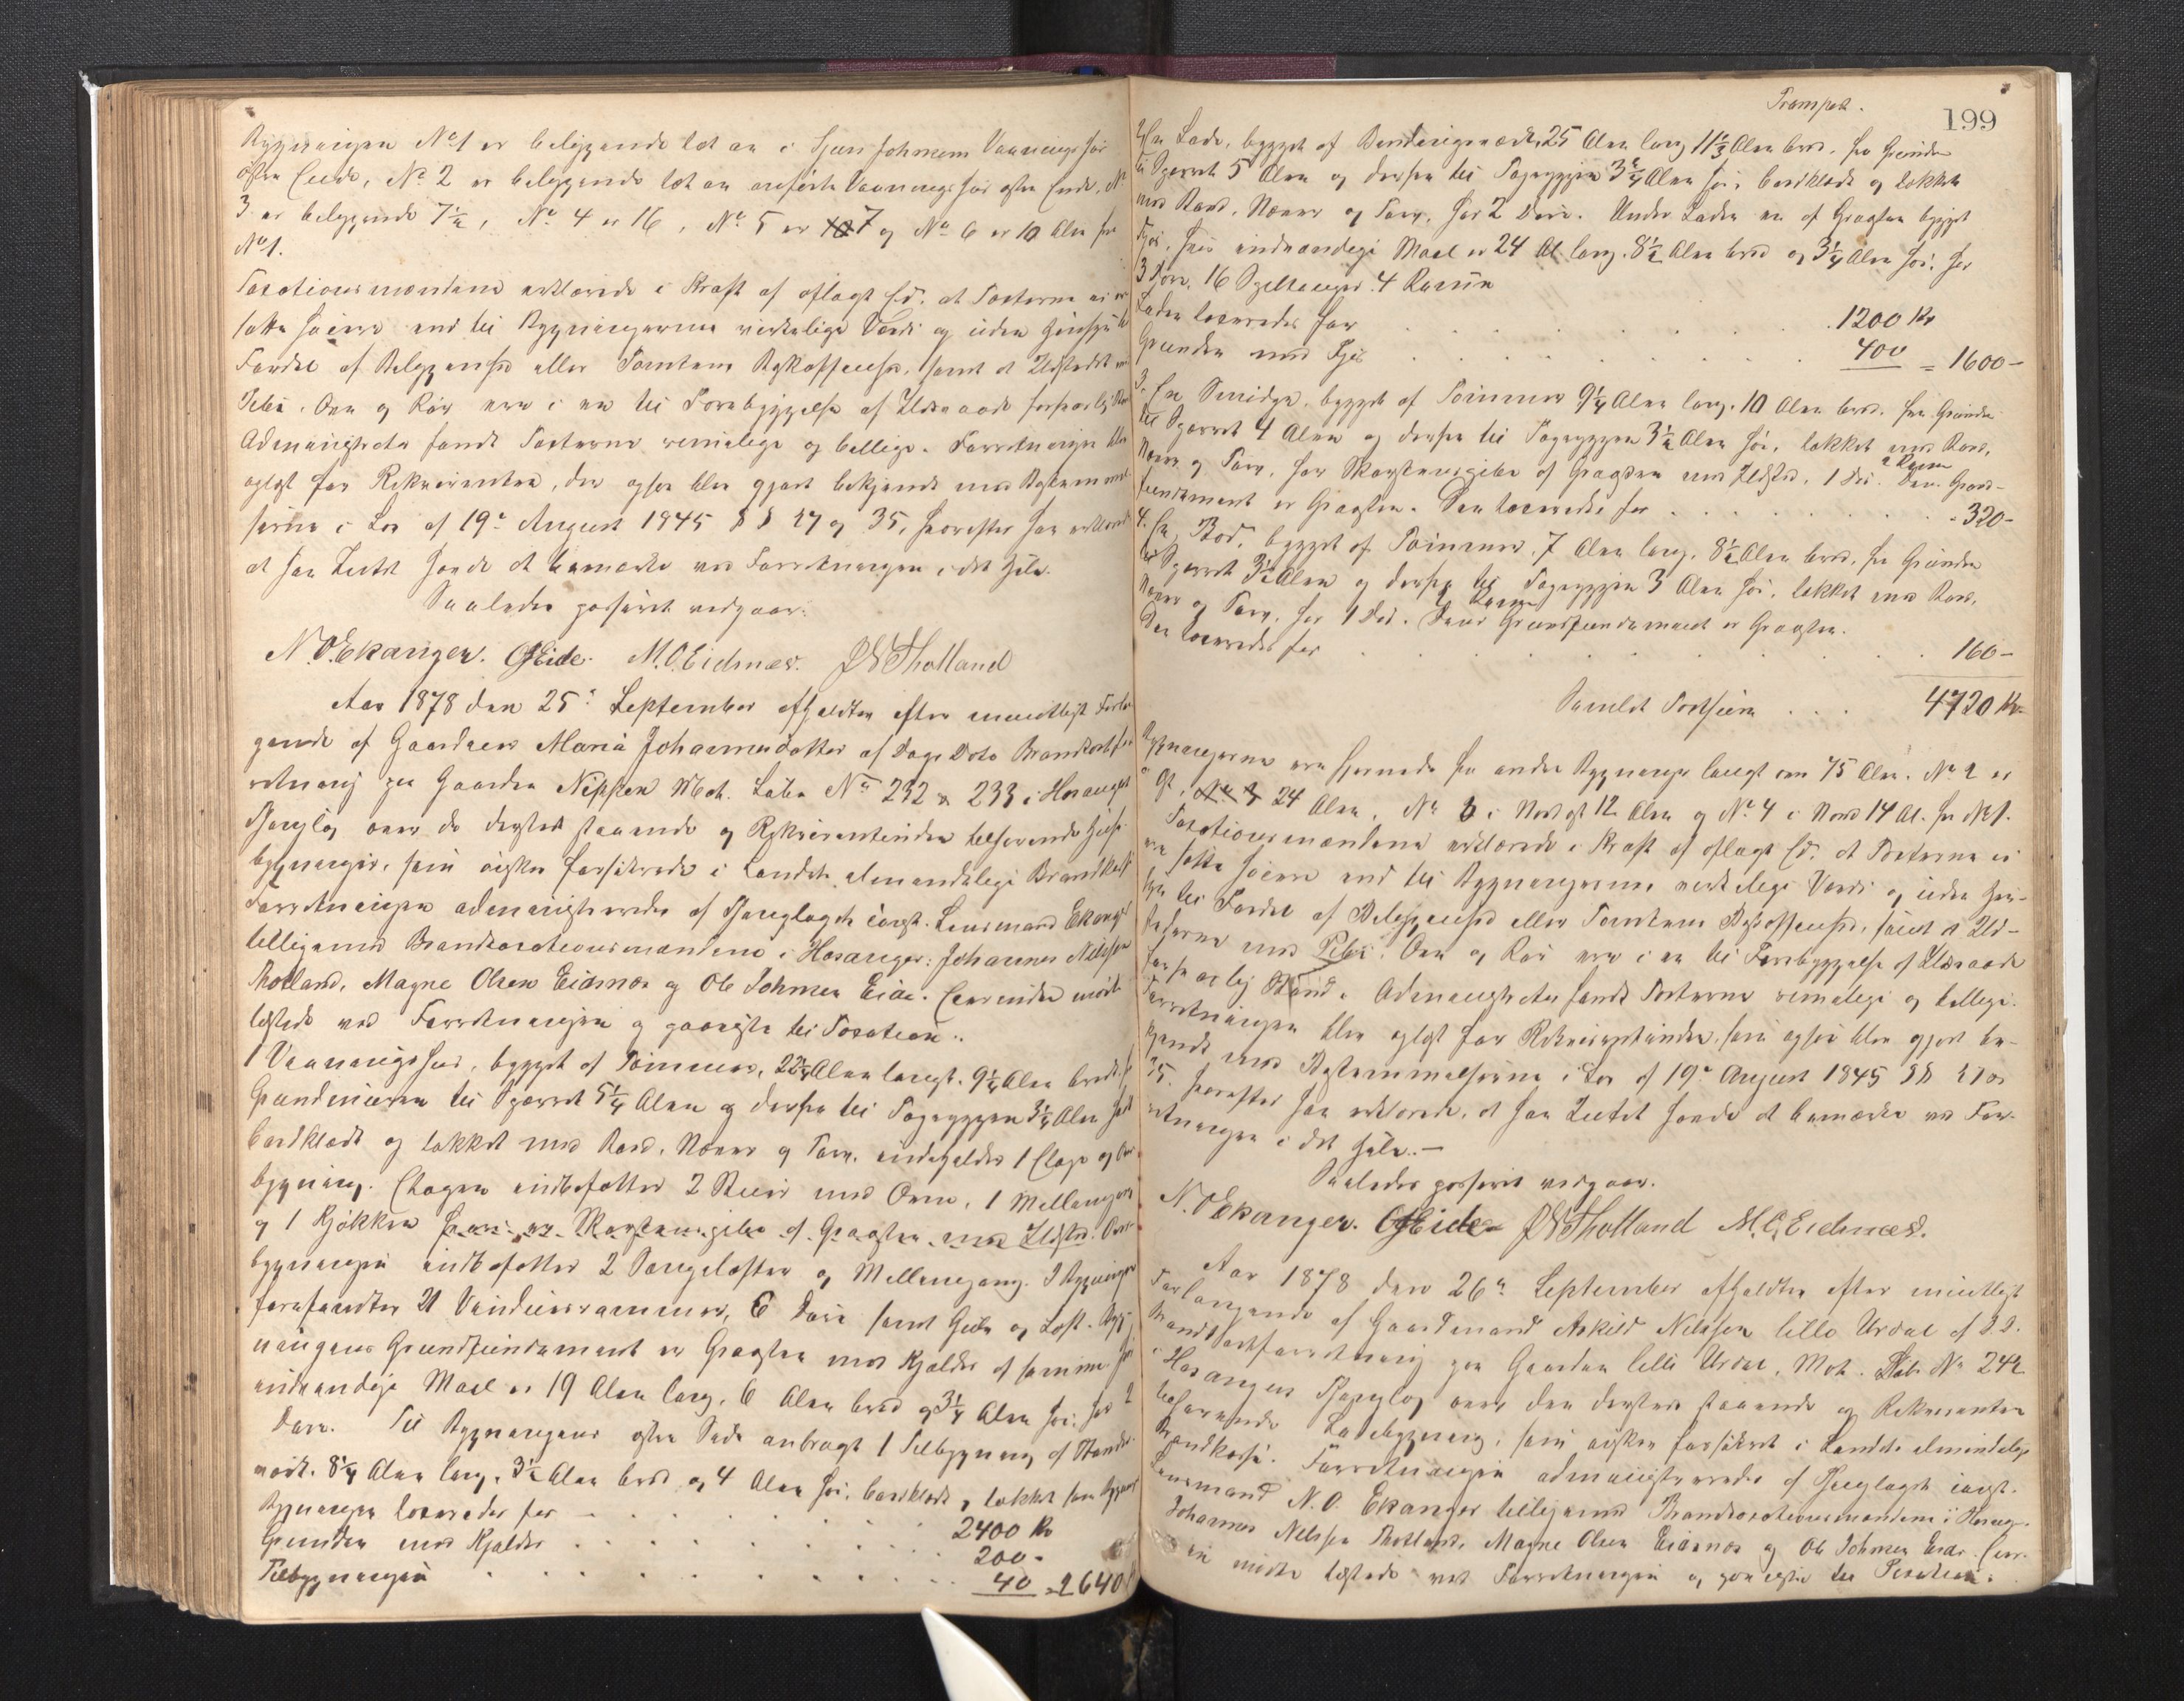 Bygningen No 1 er beliggende tæt an i Hjen Johnsens Vaaningshus
østre Ende, No 2 er beliggende tæt an anførte Vaaningshus østre Ende, No
3 er beliggende 7½, No 4 er 16, No 5 er 7 og No 6 er 10 Alen fra
No 1.
Taxationsmændene erklærede i Kraft af aflagt Ed, at Taxterne ei er
satte høiere end til Bygningernes virkelige Værdi og uden Hensyn til
Fordel af Beliggenhed eller Tomtens Beskaffenhed, samt at Ildstedet med
Pibe, Ovn og Rør ere i en til Forebyggelse af Ildsvaade forsvarlig Stand
Administrator fandt Taxterne rimelige og billige. Forretningen blev
oplæst for Rekvirenten, der ogsaa blev gjort bekjendt med Bestemmel-
serne i Lov af 19de August 1845 §§ 27 og 35, hvorefter han erklærede
at han Intet havde at bemærke ved Forretningen i det Hele.
Saaledes passeret vedgaar.
N. O. Ekanger. O J Eide. M. O. Eidsnæs. J N Tholland
Aar 1878 den 25de September afholdtes efter mundtligt Forlan-
gende af Gaardens Maria Johannesdatter af Dags Dato Brandtaxtfor-
retning paa Gaarden Nipken Mat. Løbe No 232 & 233 i Hosanger
Thinglag over de dersteds staaende og Rekvirentinden tilhørende Huus-
bygninger, som ønskes forsikrede i Landets almindelige Brandkasse
Forretningen administreredes af Thinglagets const. Lensmand Ekanger
tilligemed Brandtaxationsmændene i Hosanger: Johannes Nilssen
Tholland, Magne Olsen Eidsnæs og Ole Johnsen Eide. Eierinden var til-
stede ved Forretningen og paaviste til Taxation:
1 Vaaningshus, bygget af Tømmer, 22¼ Alen langt, 9¼ Alen bredt, fra
Grundmuren til Sperret 5¼ Alen og derfra til Tagryggen 3¾ Alen høit
bordklædt og takket med Bord, Næver og Torv, indeholder 1 Etage og Over-
bygning. Etagen indbefatter 2 Stuer med Ovne, 1 Mellemgang
og 1 Kjøkken hvori er Skorstenspibe af Graasten med Ildsted. Over-
bygningen indbefatter 2 Sengelofter og Mellemgang. I Bygningen
forefandtes 21 Vinduesrammer, 6 Døre samt Gulv og Loft. Byg-
ningens Grundfundament er Graasten med Kjælder af samme hvis
indvendige Maal er 19 Alen lang, 6 Alen bred og 3¼ Alen høi, har 2
Døre. Til Bygningens østre Side anbragt 1 Tilbygning af Stander-
værk, 8¼ Alen lang, 3½ Alen bred og 4 Alen høi, bordklædt, takket som Bygningen
Bygningen taxeredes for 2400 Kr
Grunden med Kjælder 200 -
Tilbygningen 40 = 2640
Transport.
199
2. En Lade, bygget af Bindingsværk, 25 Alen lang 11⅓ Alen bred, fra Grunden
til Sperret 5 Alen og derfra til Tagryggen 3¾ Alen høi, bordklædt og takket
med Bord, Næver og Torv, har 2 Døre. Under Laden er af Graasten bygget
Fjøs, hvis indvendige Maal er 24 Al. lang, 8½ Alen bred og 3¼ Alen høi, har
3 Døre, 16 Speltouger, 4 Rum
Laden taxeredes for 1200 Kr
Grunden med Fjøs 400 = 1600 -
3. En Smidje, bygget af Tømmer 9¼ Alen lang, 10 Alen bred, fra Grunden
til Sperret 4 Alen og derfra til Tagryggen 3½ Alen høi, takket med Bord,
Næver og Torv, har Skorstenspibe af Graasten med Ildsted, 1 Dør. Dens Grund-
fundament er Graasten. Den taxeredes for 320 -
4. En Bod, bygget af Tømmer, 7 Alen lang, 8½ Alen bred, fra Grunden
til Sperret 3½ Alen og derfra til Tagryggen 3 Alen høi, takket med Bord,
Næver og Torv, har 1 Dør. Dens Grundfundament er Graasten.
Den taxeredes for 160 -
Samlet Taxtsum 4720 Kr.
Bygningerne ere fjernede fra andre Bygninger langt over 75 Alen. No 2 er
i Øst 24 Alen, No 3 i Nordost 12 Alen og No 4 i Nord 14 Al. fra No 1.
Taxationsmændene erklærede i Kraft af aflagt Ed, at Taxterne ei
ere satte høiere end til Bygningernes virkelige Værdi og uden Hen-
syn til Fordel af Beliggenhed eller Tomtens Beskaffenhed, samt at Ild-
stederne med Pibe, Ovn og Rør ere i en til Forebyggelse af Ildsvaade
forsvarlig Stand. Administrator fandt Taxterne rimelige og billige.
Forretningen blev oplæst for Rekvirentinden, som ogsaa blev gjort be-
kjendt med Bestemmelserne i Lov af 19de August 1845 §§ 27 og
35, hvorefter hun erklærede, at hun Intet havde at bemærke ved For-
retningen i det Hele. —
Saaledes passeret vedgaar.
N. O Ekanger. O J Eide J N Tholland M. O. Eidsnæs.
Aar 1878 den 26de September afholdtes efter mundtligt
Forlangende af Gaardmand Askild Nilssen lille Urdal af D. D.
Brandtaxtforretning paa Gaarden lille Urdal, Mat. Løb. No 242
i Hosanger Thinglag over den dersteds staaende og Rekvirenten
tilhørende Ladebygning, som ønskes forsikret i Landets almindelige
Brandkasse. Forretningen administreredes af Thinglagets const.
Lensmand N. O. Ekanger tilligemed Brandtaxationsmændene i Hosanger
Johannes Nilssen Tholland, Magne Olsen Eidsnæs og Ole Johnsen Eide. Eier-
en var tilstede ved Forretningen og paaviste til Taxation: